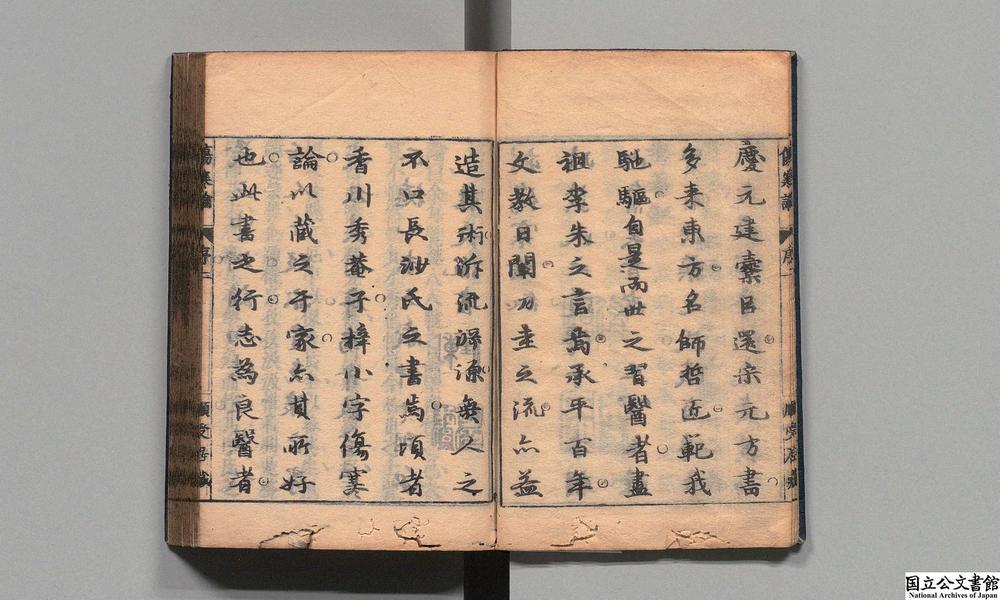 慶元建櫜吕還宋元方書
多来東方名師哲匠範我
馳驅自是而世之習醫者盡
祖李朱之言焉承平百年
文教日闡刀圭之流亦益
造其術泝流溯源無人之
不口長沙氏之書焉頃者
香川秀菴子梓小字傷寒
論以藏之于家亦其所好
也此書之行志為良醫者
傷寒論
序二
国立公文書館
National Archives of Japan